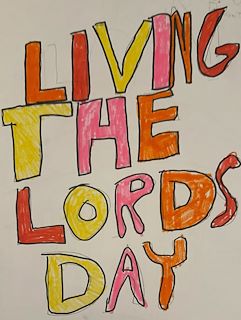 LIVING
THE
LORDS
DAY